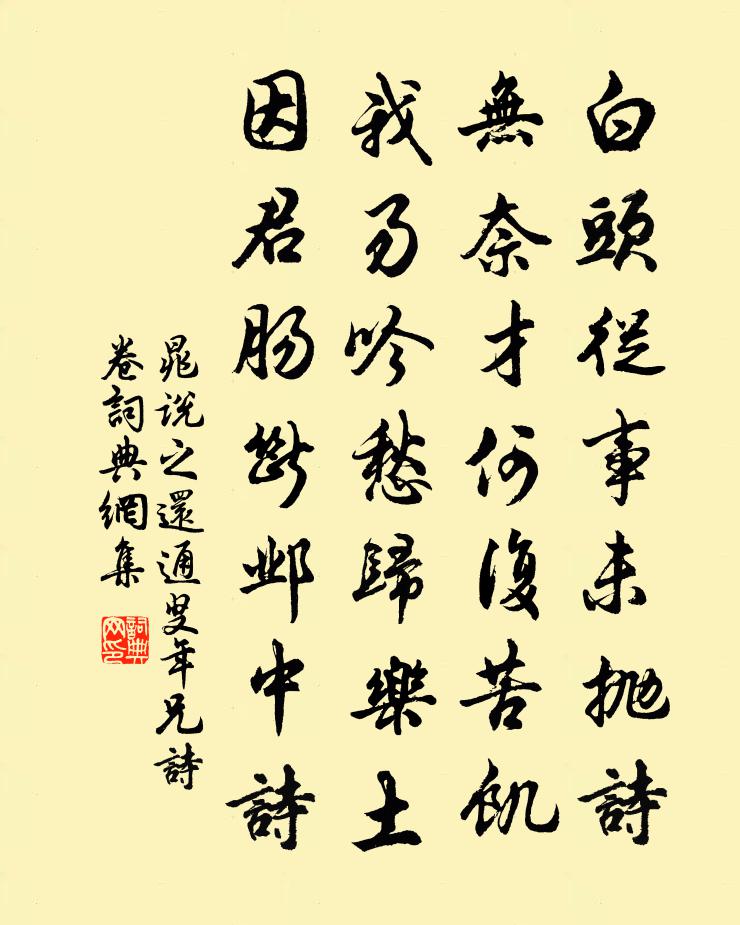 白頭從事未拋詩
無奈才何復苦飢
我吟愁歸樂土
因君肠斷邺中詩
晁說之還通叟年兄詩
卷詞典網集
詞典
网印